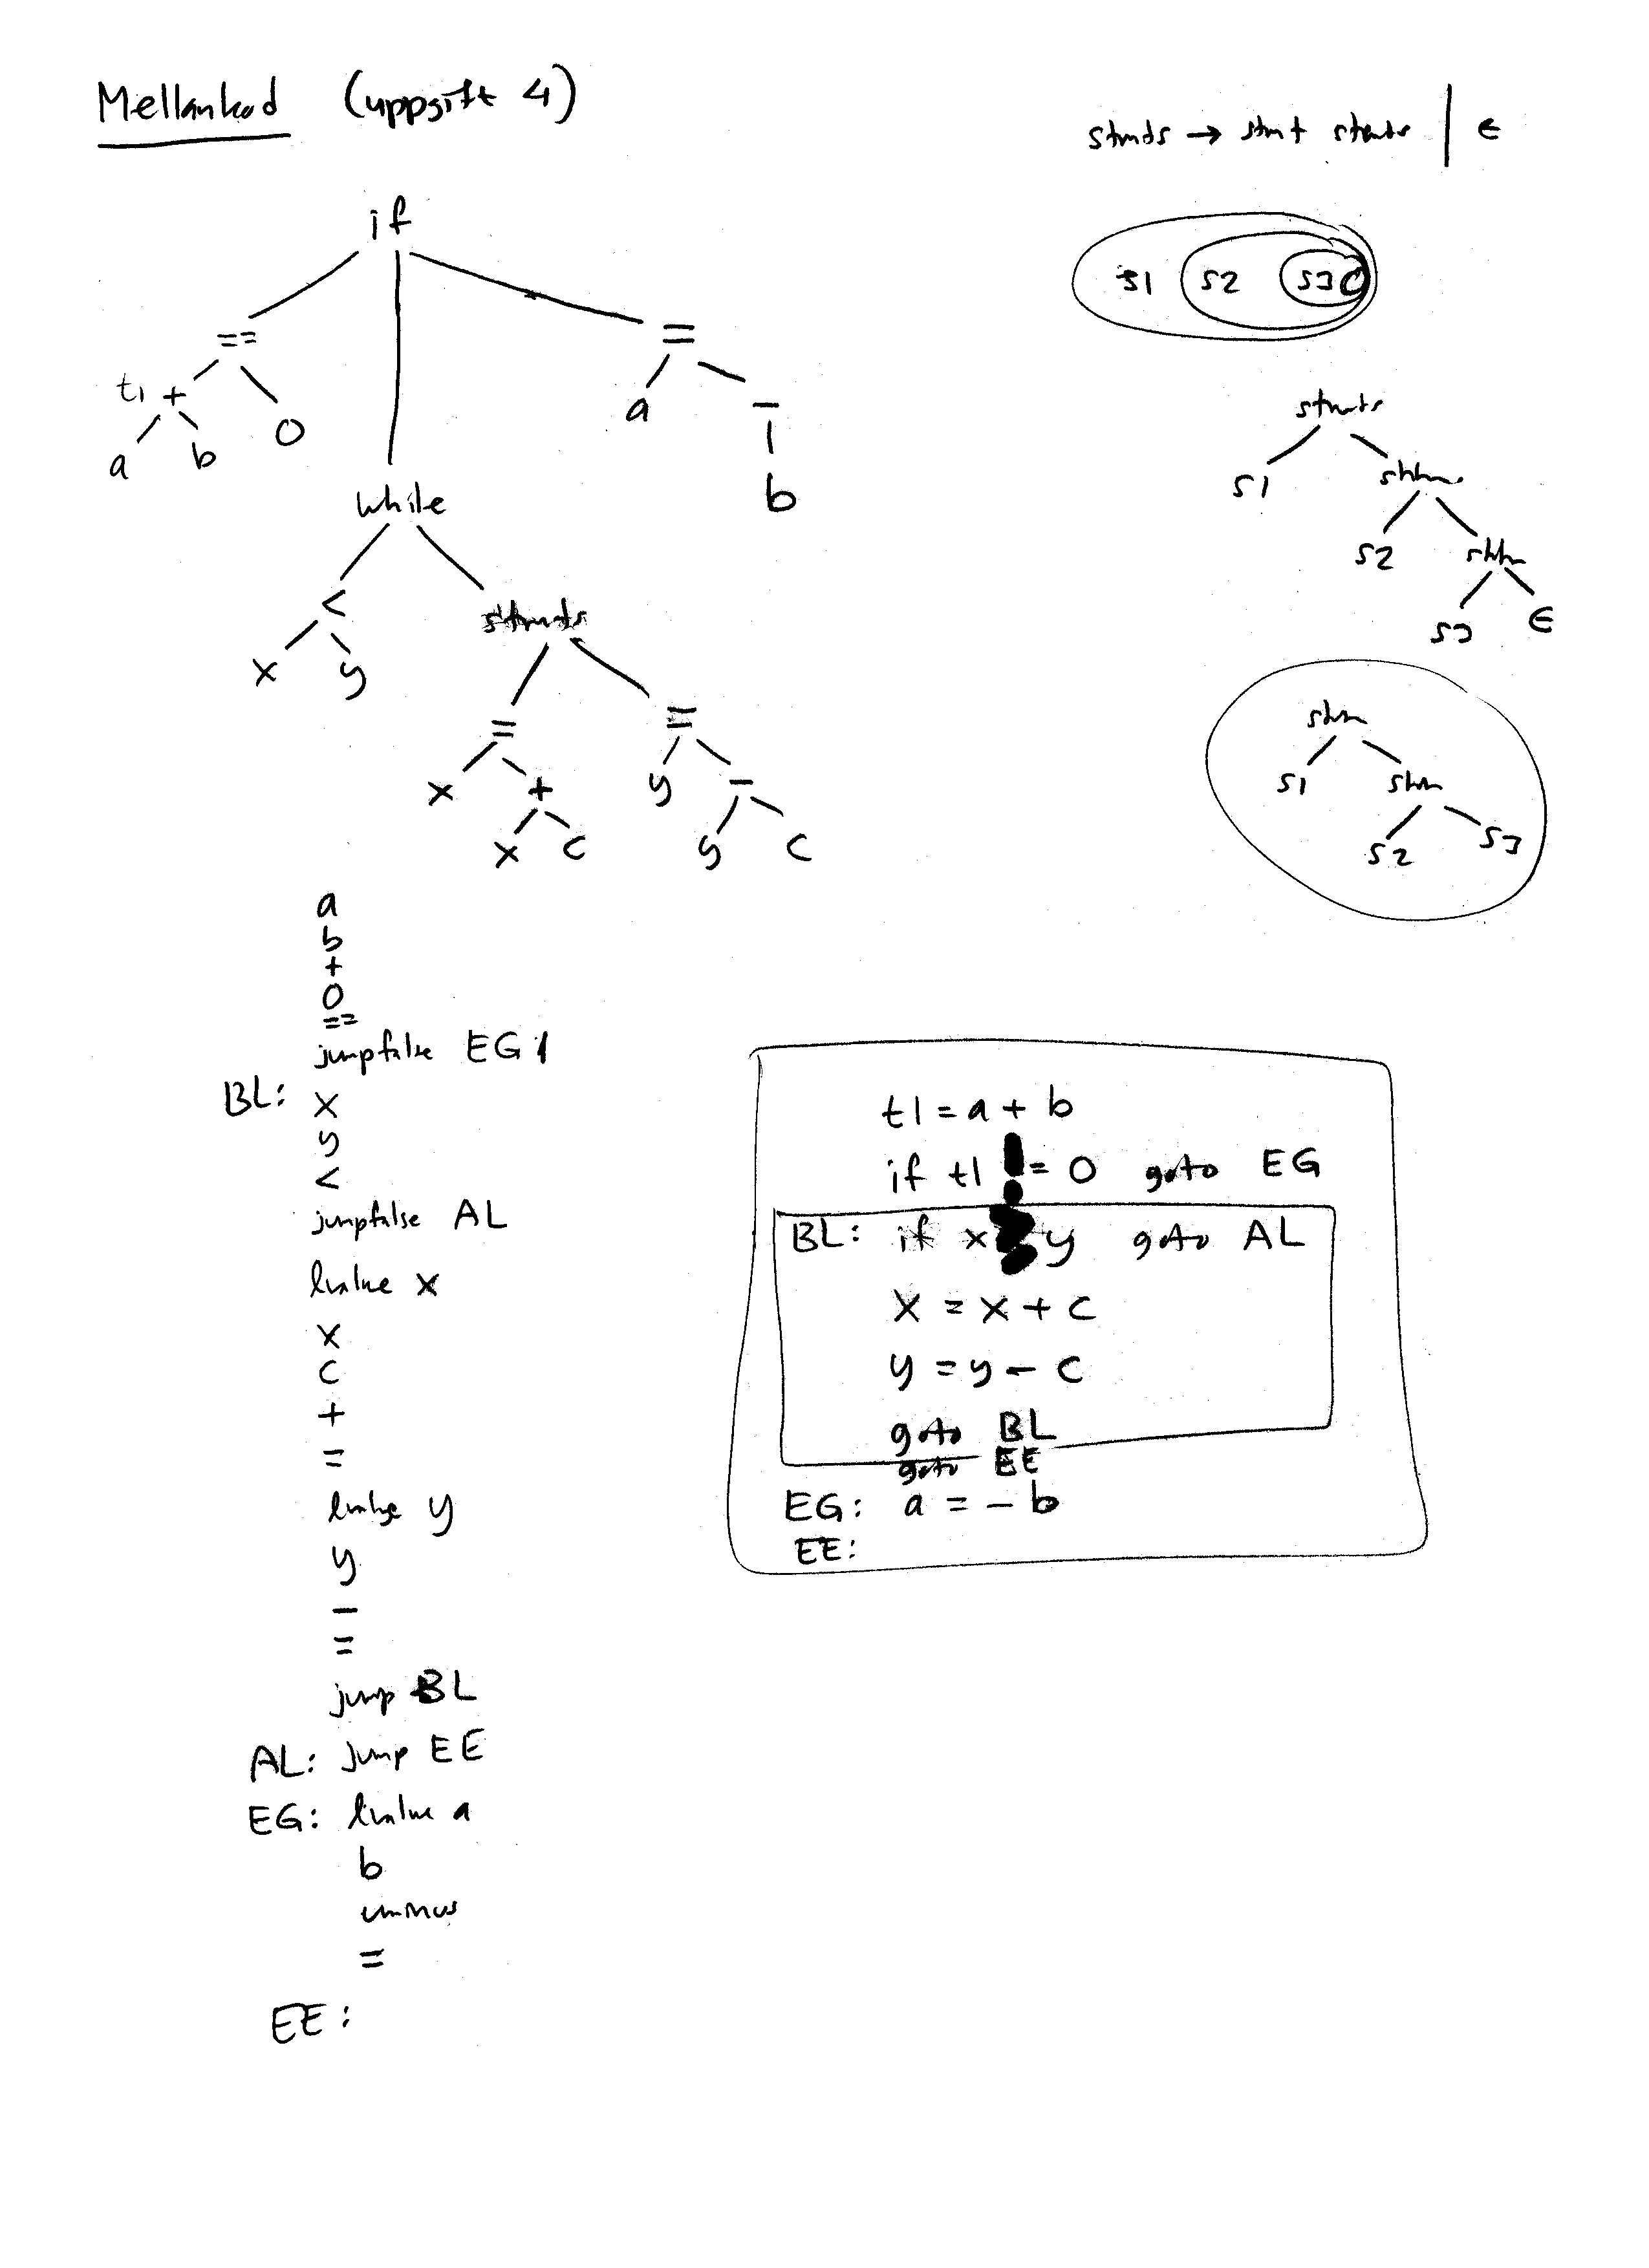 Mellankod (uppgift 4)
stmts → stmt stmts | ϵ
if
s1 s2 s3
==
=
t1 +
0
a
-
a b
b
stmts
s1 stmts
s2 stmts
s3 ϵ
while
<
stmts
x y
= =
x + y -
x c y c
stm
s1 stm
s2 s3
a
b
+
0
==
jumpfalse EG
BL: x
y
<
jumpfalse AL
lvalue x
x
c
+
=
lvalue y
y
-
=
jump BL
AL: jump EE
EG: lvalue a
b
uminus
=
EE:
t1 = a + b
if t1 != 0 goto EG
BL: if x y goto AL
x = x + c
y = y - c
goto BL
goto EE
EG: a = - b
EE: